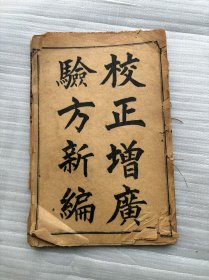 校正增廣
驗方新編